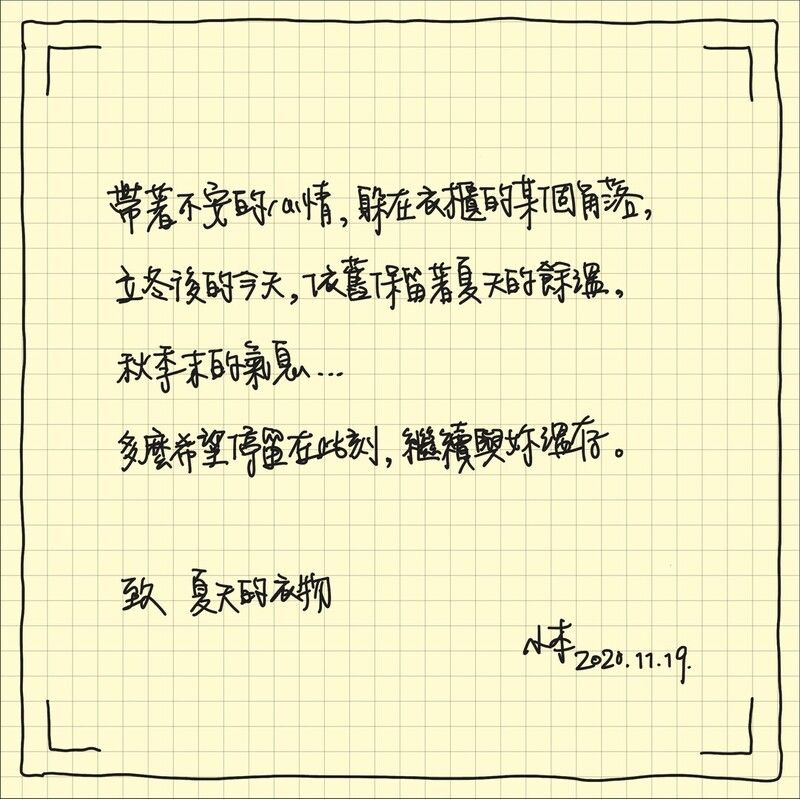 帶著不安的心情，躲在衣櫃的某個角落，
立冬後的今天，依舊保留著夏天的餘溫，
秋季末的氣息...
多麼希望停留在此刻，繼續與妳溫存。
致 夏天的衣物
小李 2020.11.19.